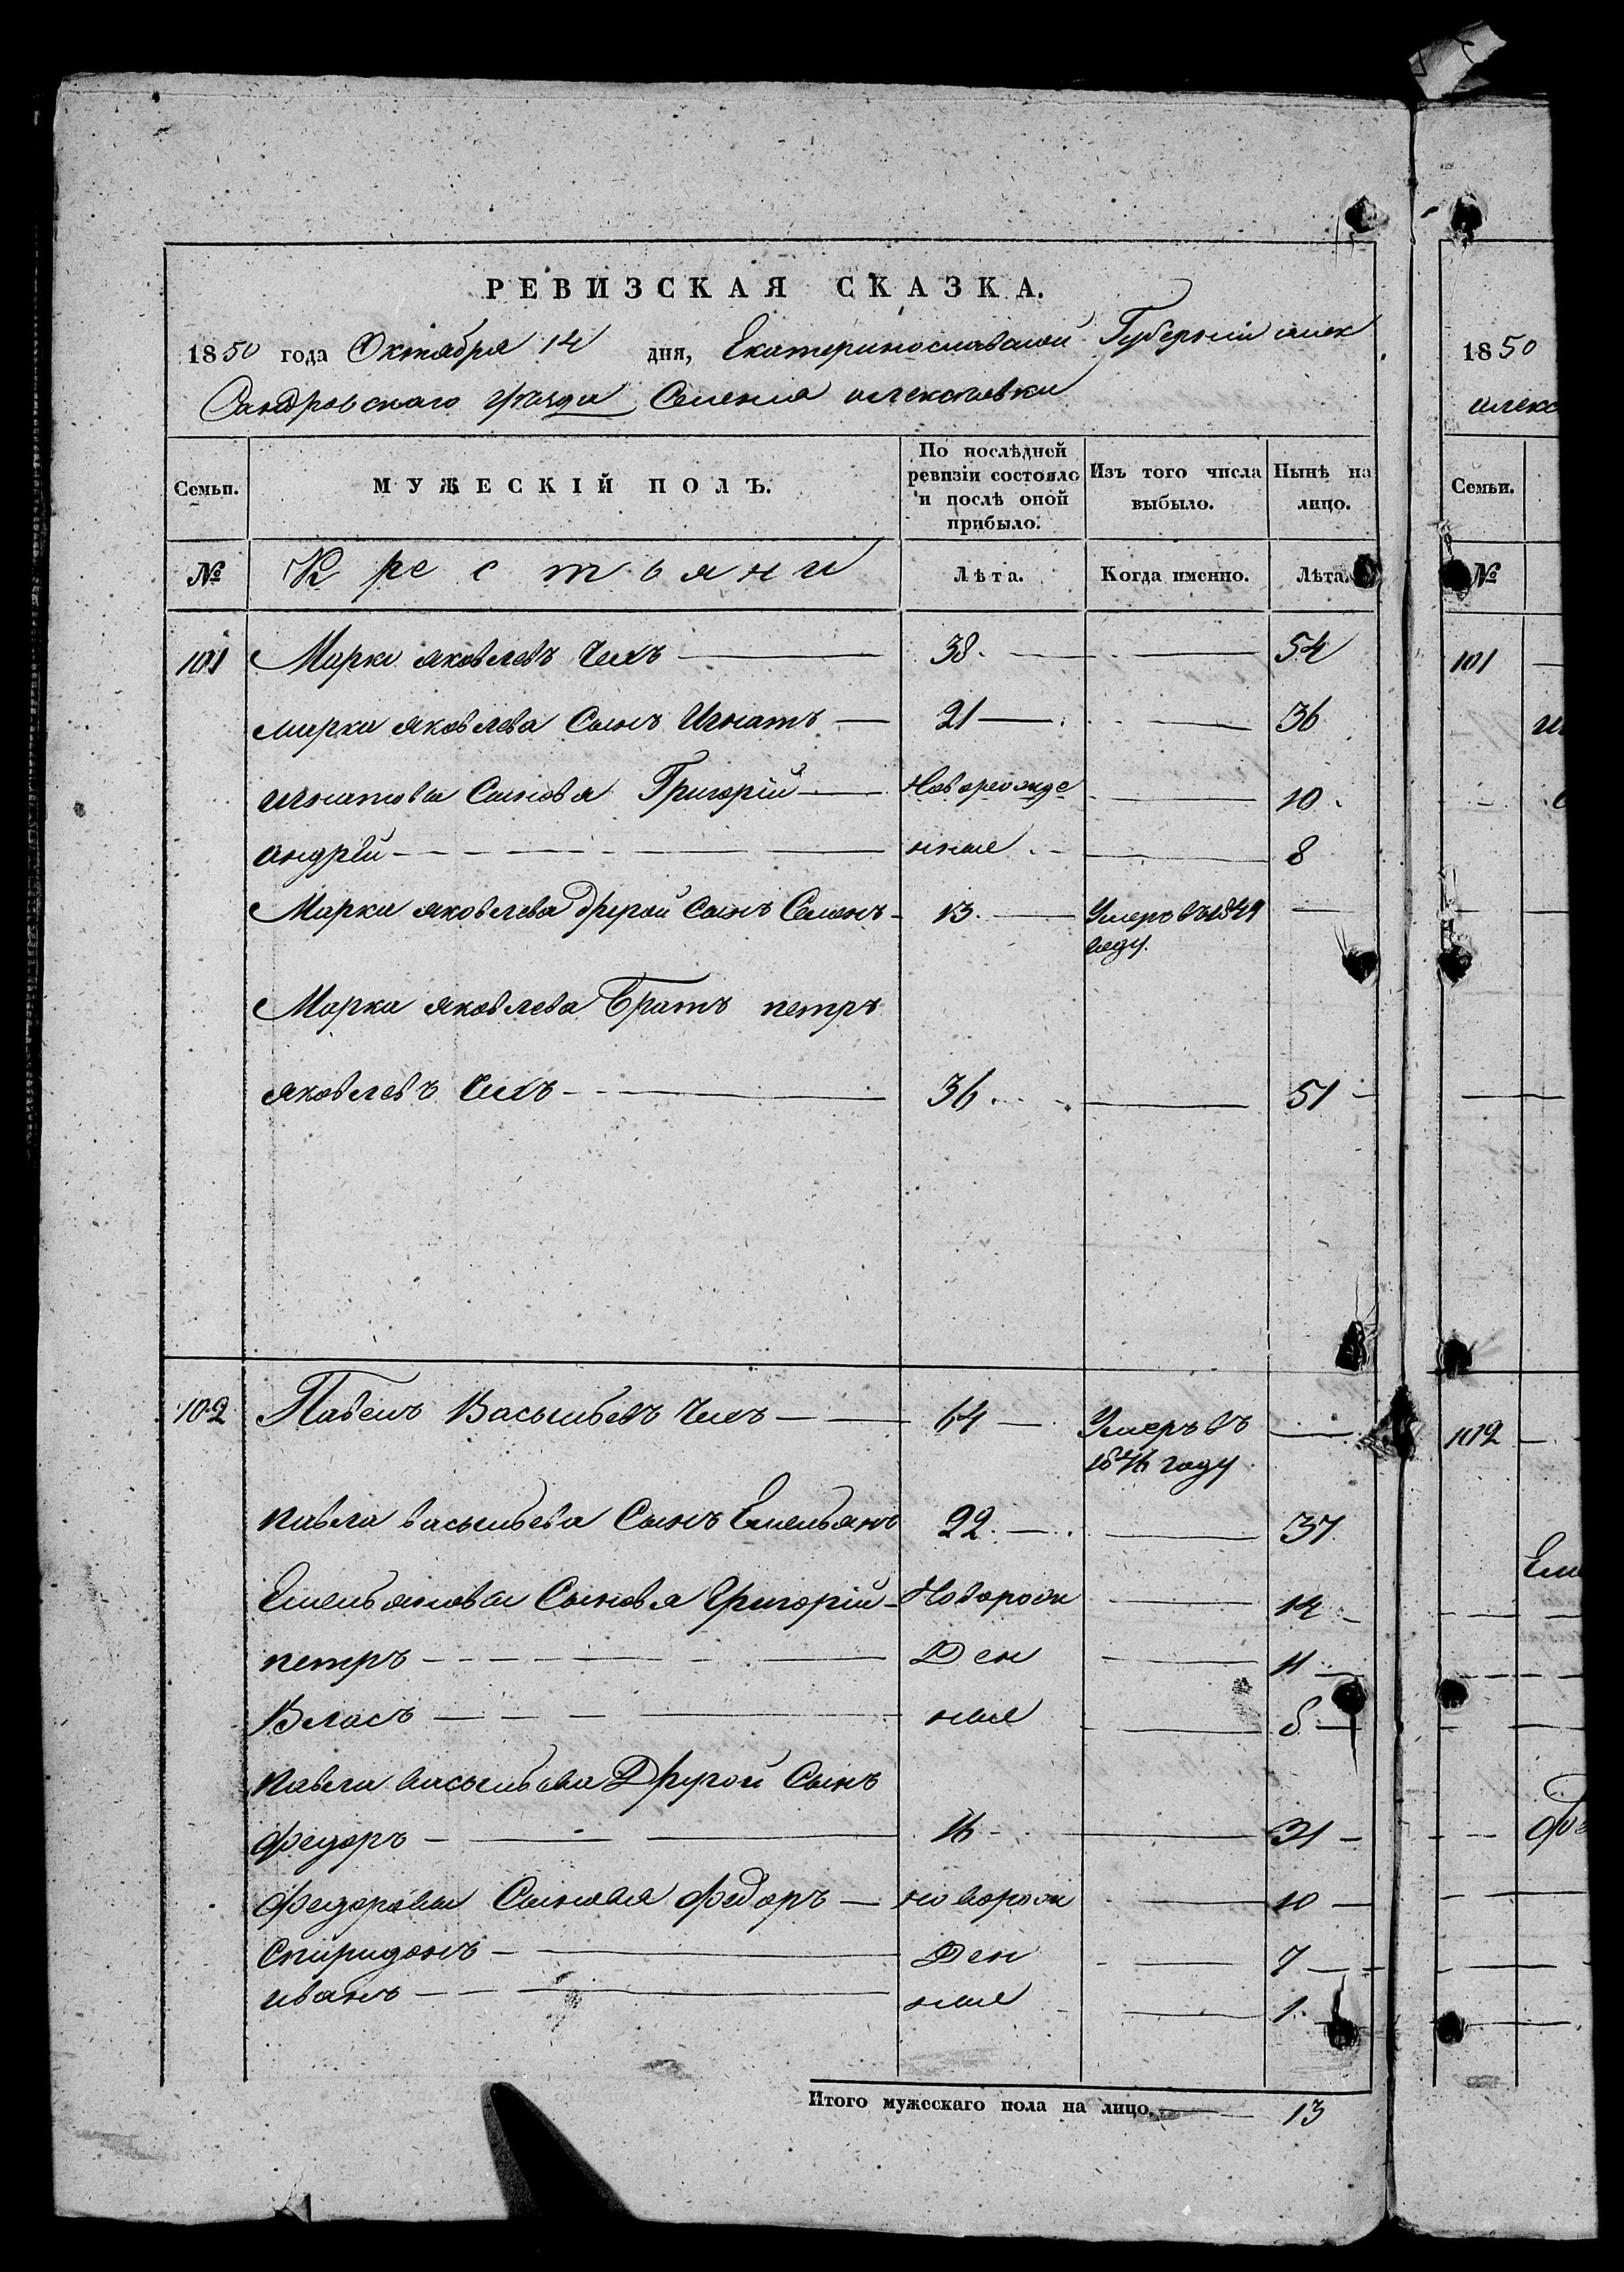 РЕВИЗСКАЯ СКАЗКА.
1850 года Октября 14 дня, Екатеринославской Губернии алек
Сандровского уезда Селения алексеевки
Семьи. МУЖЕСКІЙ ПОЛЪ. По послѣдней ревизіи состояло и послѣ оной прибыло. Изъ того числа выбыло. Нынѣ на лицо.
№ Крестьяни Лѣта. Когда именно. Лѣта.
101 Марко яковлевъ Чихъ 38. 54
марка яковлева Сынъ Игнатъ 21 36
игнатова Сыновя Григорій Новорожде 10
андрѣй нные 8
Марка яковлева другой Сынъ Семенъ 13. Умеръ въ 1849
году.
Марка яковлева Братъ петръ
яковлевъ Чихъ 36. 51
102 Павелъ Васильевъ Чихъ 64 Умеръ въ
1846 году
павла васильева Сынъ Емельянъ 22. 37
Емельянова Сыновя ГригорійНоворож 14
петръ Ден 11
Власъ ные 8
павла васильева Другой Сынъ
федоръ 16 31
федорова Сыновя федоръ новорож 10
Спиридонъ Ден 7
иванъ ные 1.
Итого мужескаго пола на лицо. 13
1850
алекс
Семьи.
№
101
102
Еме
фе